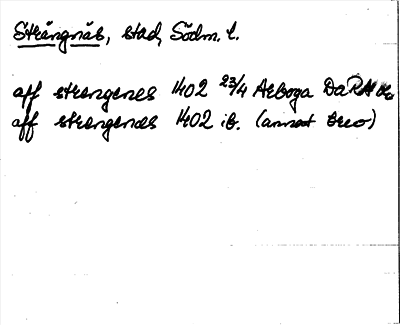 Strängnäs, stad, Södm. l.
aff strengenes 1402 23/4 Arboga DaRA
aff strengenes 1402 ib. (annat brev)